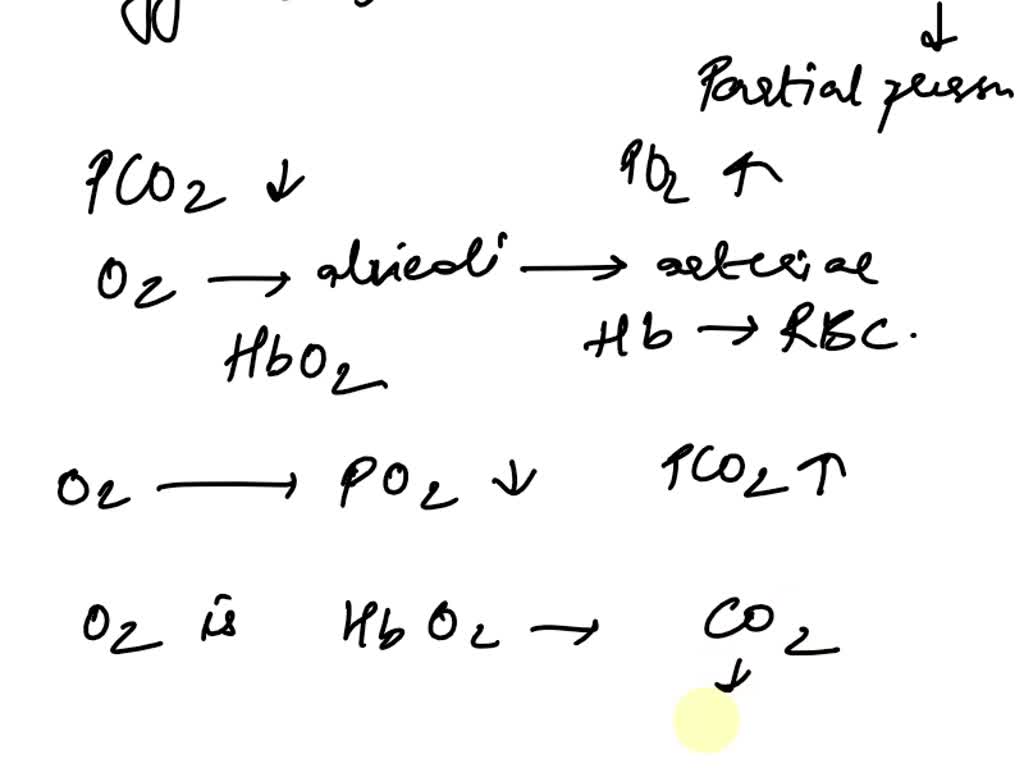 Partial
PCO2 ↓ PO2 ↑
O2 → alvieoli → arterial
HbO2 Hb → RBC.
O2 → PO2 ↓ PCO2 ↑
O2 is HbO2 → CO2
↓